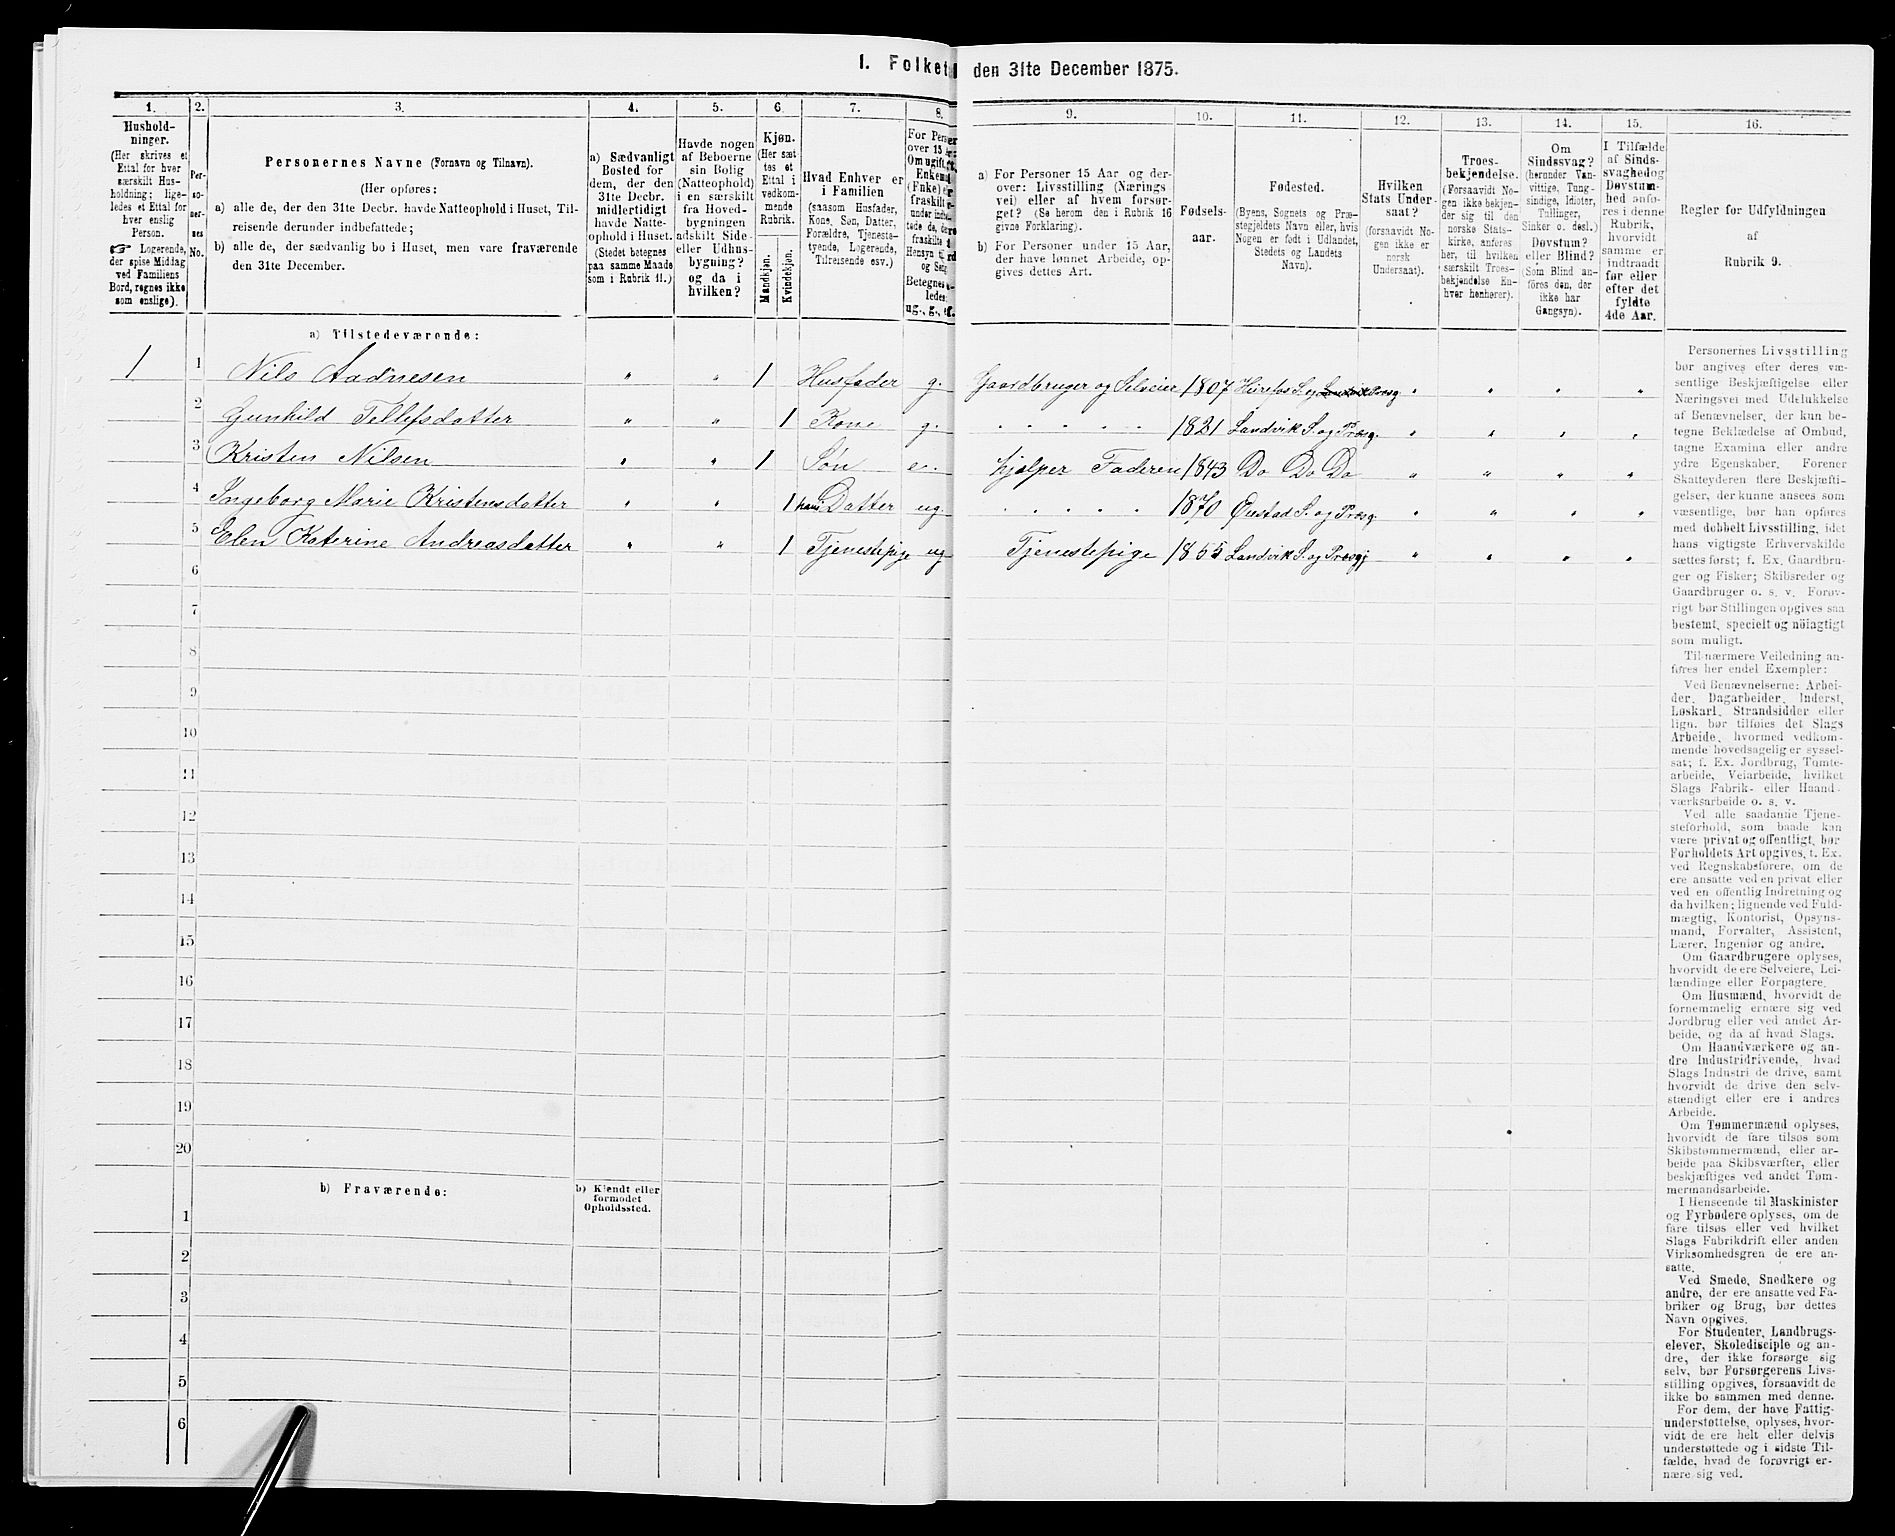 1. Folket
den 31te December 1875.
1.
Hushold-
ninger.
(Her skrives et
Ettal for hver
særskilt Hus-
holdning; lige-
ledes et Ettal for
hver enslig
Person.
☞ Logerende,
der spise Middag
ved Familiens
Bord, regnes ikke
som enslige).
2.
Per-
so-
ner-
nes
No.
3.
Personernes Navne (Fornavn og Tilnavn).
(Her opføres:
a) alle de, der den 31te Decbr. havde Natteophold i Huset, Til-
reisende derunder indbefattede;
b) alle de, der sædvanlig bo i Huset, men vare fraværende
den 31te December.
4.
a) Sædvanligt
Bosted for
dem, der den
31te Decbr.
midlertidigt
havde Natte-
ophold i Huset.
(Stedet betegnes
paa samme Maade
som i Rubrik 11.)
5.
Havde nogen
af Beboerne
sin Bolig
(Natteophold)
i en særskilt
fra Hoved-
bygningen
adskilt Side-
eller Udhus-
bygning?
og da i
hvilken?
6.
Kjøn.
(Her sæt
tes et
Ettal i
vedkom-
mende
Rubrik.
Mandkjøn.
Kvindekjøn.
7.
Hvad Enhver er
i Familien
(saasom Husfader,
Kone, Søn, Datter,
Forældre, Tjeneste-
tyende, Logerende,
Tilreisende osv.)
8.
For Pers
over 15
Om ugift,
Enkem
(Enke) e
fraskilt
9.
a) For Personer 15 Aar og der-
over: Livsstilling (Nærings
vei) eller af hvem forsør-
get? (Se herom den i Rubrik 16
givne Forklaring).
b) For Personer under 15 Aar,
der have lønnet Arbeide, op-
gives dettes Art.
10.
Fødsels-
aar.
11.
Fødested.
(Byens, Sognets og Præ-
stegjeldets Navn eller, hvis
Nogen er født i Udlandet,
Stedets og Landets
Navn).
12.
Hvilken
Stats Under-
saat?
(forsaavidt No-
gen ikke er
norsk
Undersaat).
13.
Troes-
bekjendelse.
(Forsaavidt No-
gen ikke bekjen-
der sig til den
norske Stats-
kirke, anføres
her, til hvilken
særskilt Troes-
bekjendelse En-
hver henhører).
14.
Om
Sindssvag?
(herunder Van-
vittige, Tung-
sindige, Idioter,
Tullinger,
Sinker o. desl.)
Døvstum?
eller Blind?
(Som Blind an-
føres den, der
ikke har
Gangsyn).
15.
I Tilfælde
af Sinds-
svaghed og
Døvstum-
hed anfø-
res i denne
Rubrik,
hvorvidt
samme er
indtraadt
før eller
efter det
fyldte
4de Aar.
16.
Regler for Udfyldningen
af
Rubrik 9.
a) Tilstedeværende:
1 1 Nils Aadnesen " " 1 Husfader g. Gaardbruger og Selveier 1807 Hirefos S. og Landvik Præsg " " " "
2 Gunhild Tellefsdatter " " 1 Kone g. 1821 Landvik S. og Præsg. " " " "
3 Kristen Nilsen " " 1 Søn e. hjelper Faderen 1843 Do Do Do " " " "
4 Ingeborg Marie Kristensdatter " " 1 hans Datter ug. 1870 Øiestad S. og Præsg. " " " "
5 Elen Katerine Andreasdatter " " 1 Tjenestepige ug Tjenestepige 1855 Landvik S. og Præsgj " " " "
6
7
8
9
10
11
12
13
14
15
16
17
18
19
20
b) Fraværende:
b) Kjendt eller
formodet
Opholdssted.
1
2
3
4
5
6
Personernes Livsstilling
bør angives efter deres væ-
sentlige Beskjæftigelse eller
Næringsvei med Udelukkelse
af Benævnelser, der kun be-
tegne Beklædelse af Ombud,
tagne Examina eller andre
ydre Egenskaber. Forener
Skatteyderen flere Beskjæfti-
gelser, der kunne ansees som
væsentlige, bør han opføres
med dobbelt Livsstilling, idet
hans vigtigste Erhvervskilde
sættes først; f. Ex. Gaardbru-
ger og Fisker; Skibsreder og
Gaardbruger o. s. v. Forøv-
rigt bør Stillingen opgives saa
bestemt, specielt og nöiagtigt
som muligt.
Til nærmere Veiledning an-
føres her endel Exempler:
Ved Benævnelserne: Arbei-
der, Dagarbeider, Inderst,
Løskarl, Strandsidder eller
lign. bør tilføies det Slags
Arbeide, hvormed vedkom-
mende hovedsagelig er syssel-
sat; f. Ex. Jordbrug, Tomte-
arbeide, Veiarbeide, hvilket
Slags Fabrik- eller Haand-
værksarbeide o. s. v.
Ved alle saadanne Tjene-
steforhold, som baade kan
være privat og offentligt, bør
Forholdets Art opgives, t. Ex.
ved Regnskabsførere, om de
ere ansatte ved en privat eller
ved en offentlig Indretning og
da hvilken; lignende ved Fuld-
mægtig, Kontorist, Opsyns-
mand, Forvalter, Assistent,
Lærer, Ingeniør og andre.
Om Gaardbrugere oplyses,
hvorvidt de ere Selveiere, Lei-
lændinge eller Forpagtere.
Om Husmænd, hvorvidt de
fornemmelig ernære sig ved
Jordbrug eller ved andet Ar-
beide, og da af hvad Slags.
Om Haandværkere og an-
dre Industridrivende, hvad
Slags Industri de drive, samt
hvorvidt de drive den selv-
stændigt eller ere i andres
Arbeide.
Om Tømmermænd oplyses,
hvorvidt de fare tilsøs som
Skibstømmermænd, eller ar-
beide paa Skibsværfter, eller
beskjæftiges ved andet Tøm-
mermandsarbeide.
I Henseende til Maskinister
og Fyrbødere oplyses, om de
fare tilsøs eller ved hvilket
Slags Fabrikdrift eller anden
Virksomhedsgren de ere an-
satte.
Ved Smede, Snedkere og
andre, der ere ansatte ved Fa-
briker og Brug, bør dettes
Navn opgives.
For Studenter, Landbrugs-
elever, Skoledisciple og an-
dre, der ikke forsørge sig
selv, bør Forsørgerens Livs-
stilling opgives, forsaavidt de
ikke bo sammen med denne.
For dem, der have Fattig-
understøttelse, oplyses, hvor-
vidt de ere helt eller delvis
understøttede og i sidste Til-
fælde, hvad de forøvrigt er-
nære sig ved.